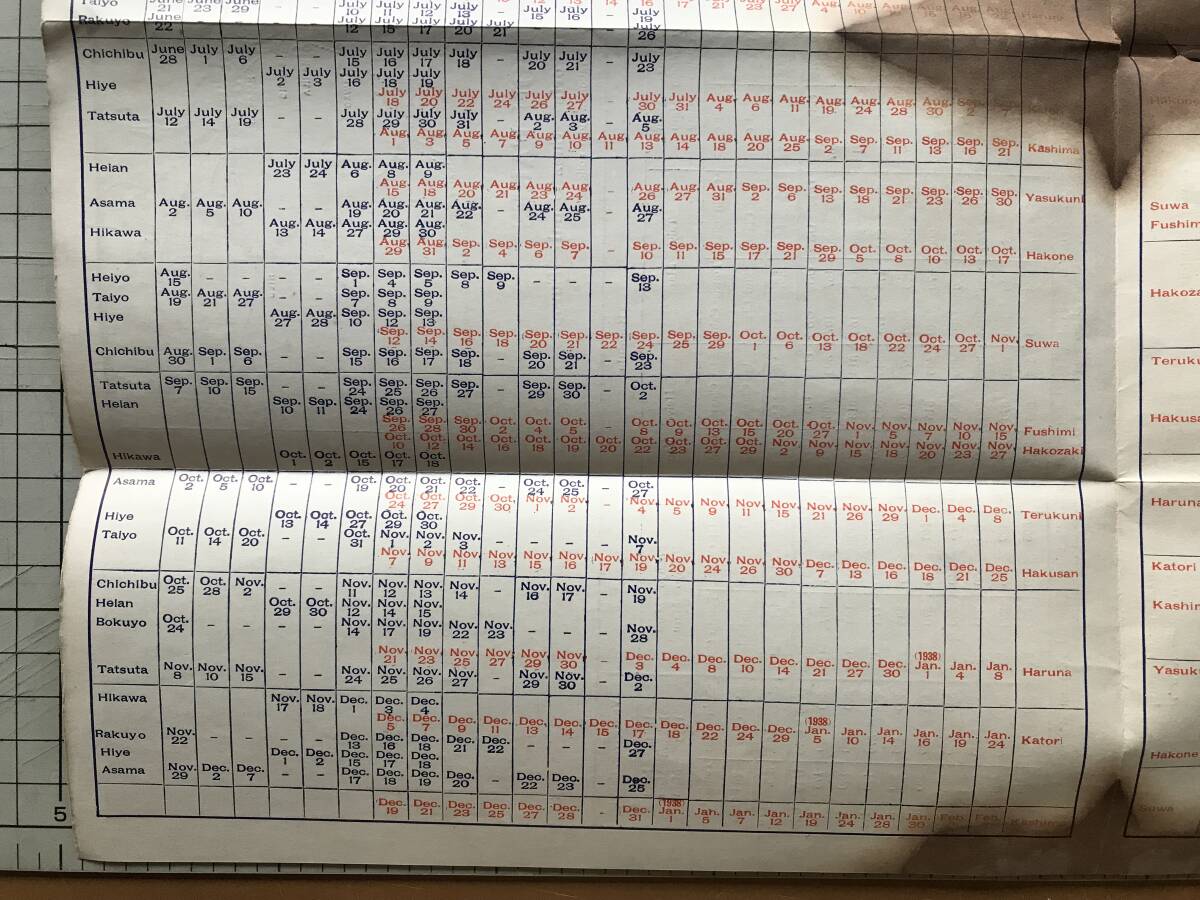 Taiyo June 21 June 23 June 29 July 10 July 11 July 12 July 13 July 15 July 16 July 19
Rakuyo June 22 July 12 July 15 July 17 July 20 July 21 July 26
Chichibu June 28 July 1 July 6 – – July 15 July 16 July 17 July 18 – July 20 July 21 – July 23
Hiye July 2 July 3 July 16 July 18 July 19
July 18 July 20 July 22 July 24 July 26 July 27 – July 30 July 31 Aug. 4 Aug. 6 Aug. 11 Aug. 19 Aug. 24 Aug. 28 Aug. 30
Tatsuta July 12 July 14 July 19 – – July 28 July 29 July 30 July 31 – Aug. 2 Aug. 3 – Aug. 5
Aug. 1 Aug. 3 Aug. 5 Aug. 7 Aug. 9 Aug. 10 Aug. 11 Aug. 13 Aug. 14 Aug. 18 Aug. 20 Aug. 25 Sep. 2 Sep. 7 Sep. 11 Sep. 13 Sep. 16 Sep. 21 Kashima
Heian July 23 July 24 Aug. 6 Aug. 8 Aug. 9
Aug. 15 Aug. 18 Aug. 20 Aug. 21 Aug. 23 Aug. 24 – Aug. 26 Aug. 27 Aug. 31 Sep. 2 Sep. 6 Sep. 13 Sep. 18 Sep. 21 Sep. 23 Sep. 26 Sep. 30 Yasukuni
Asama Aug. 2 Aug. 5 Aug. 10 – – Aug. 19 Aug. 20 Aug. 21 Aug. 22 – Aug. 24 Aug. 25 – Aug. 27
Hikawa Aug. 13 Aug. 14 Aug. 27 Aug. 29 Aug. 30
Aug. 29 Aug. 31 Sep. 2 Sep. 4 Sep. 6 Sep. 7 – Sep. 10 Sep. 11 Sep. 15 Sep. 17 Sep. 21 Sep. 29 Oct. 5 Oct. 8 Oct. 10 Oct. 13 Oct. 17 Hakone
Heiyo Aug. 15 – – – – Sep. 1 Sep. 4 Sep. 5 Sep. 8 Sep. 9 – – – Sep. 13
Taiyo Aug. 19 Aug. 21 Aug. 27 – – Sep. 7 Sep. 8 Sep. 9
Hiye Aug. 27 Aug. 28 Sep. 10 Sep. 12 Sep. 13
Sep. 12 Sep. 14 Sep. 16 Sep. 18 Sep. 20 Sep. 21 Sep. 22 Sep. 24 Sep. 25 Sep. 29 Oct. 1 Oct. 6 Oct. 13 Oct. 18 Oct. 22 Oct. 24 Oct. 27 Nov. 1 Suwa
Chichibu Aug. 30 Sep. 1 Sep. 6 – – Sep. 15 Sep. 16 Sep. 17 Sep. 18 – Sep. 20 Sep. 21 – Sep. 23
Tatsuta Sep. 7 Sep. 10 Sep. 15 – – Sep. 24 Sep. 25 Sep. 26 Sep. 27 – Sep. 29 Sep. 30 – Oct. 2
Heian Sep. 10 Sep. 11 Sep. 24 Sep. 26 Sep. 27
Sep. 26 Sep. 28 Sep. 30 Oct. 2 Oct. 4 Oct. 5 – Oct. 8 Oct. 9 Oct. 13 Oct. 15 Oct. 20 Oct. 27 Nov. 1 Nov. 5 Nov. 7 Nov. 10 Nov. 15 Fushimi
Oct. 10 Oct. 12 Oct. 14 Oct. 16 Oct. 18 Oct. 19 Oct. 20 Oct. 22 Oct. 23 Oct. 27 Oct. 29 Nov. 2 Nov. 9 Nov. 15 Nov. 18 Nov. 20 Nov. 23 Nov. 27 Hakozaki
Hikawa Oct. 1 Oct. 2 Oct. 15 Oct. 17 Oct. 18
Asama Oct. 2 Oct. 5 Oct. 10 – – Oct. 19 Oct. 20 Oct. 21 Oct. 22 – Oct. 24 Oct. 25 – Oct. 27
Oct. 24 Oct. 27 Oct. 29 Oct. 30 Nov. 1 Nov. 2 – Nov. 4 Nov. 5 Nov. 9 Nov. 11 Nov. 15 Nov. 21 Nov. 26 Nov. 29 Dec. 1 Dec. 4 Dec. 8 Terukuni
Hiye Oct. 13 Oct. 14 Oct. 27 Oct. 29 Oct. 30
Taiyo Oct. 11 Oct. 14 Oct. 20 – – Oct. 31 Nov. 1 Nov. 2 Nov. 3 – – – – Nov. 7
Nov. 7 Nov. 9 Nov. 11 Nov. 13 Nov. 15 Nov. 16 Nov. 17 Nov. 19 Nov. 20 Nov. 24 Nov. 26 Nov. 30 Dec. 7 Dec. 13 Dec. 16 Dec. 18 Dec. 21 Dec. 25 Hakusan
Chichibu Oct. 25 Oct. 28 Nov. 2 – – Nov. 11 Nov. 12 Nov. 13 Nov. 14 – Nov. 16 Nov. 17 – Nov. 19
Heian Oct. 29 Oct. 30 Nov. 12 Nov. 14 Nov. 15
Bokuyo Oct. 24 – – – – Nov. 14 Nov. 17 Nov. 19 Nov. 22 Nov. 23 – – – Nov. 28
Nov. 21 Nov. 23 Nov. 25 Nov. 27 Nov. 29 Nov. 30 – Dec. 3 Dec. 4 Dec. 8 Dec. 10 Dec. 14 Dec. 21 Dec. 27 Dec. 30 (1938) Jan. 1 Jan. 4 Jan. 8 Haruna
Tatsuta Nov. 8 Nov. 10 Nov. 15 – – Nov. 24 Nov. 25 Nov. 26 Nov. 27 – Nov. 29 Nov. 30 – Dec. 2
Hikawa Nov. 17 Nov. 18 Dec. 1 Dec. 3 Dec. 4
Dec. 5 Dec. 7 Dec. 9 Dec. 11 Dec. 13 Dec. 14 Dec. 15 Dec. 17 Dec. 18 Dec. 22 Dec. 24 Dec. 29 (1938) Jan. 5 Jan. 10 Jan. 14 Jan. 16 Jan. 19 Jan. 24 Katori
Rakuyo Nov. 22 – – – – Dec. 13 Dec. 16 Dec. 18 Dec. 21 Dec. 22 – – – Dec. 27
Hiye Dec. 1 Dec. 2 Dec. 15 Dec. 17 Dec. 18
Asama Nov. 29 Dec. 2 Dec. 7 – – Dec. 17 Dec. 18 Dec. 19 Dec. 20 – Dec. 22 Dec. 23 – Dec. 25
Dec. 19 Dec. 21 Dec. 23 Dec. 25 Dec. 27 Dec. 28 – Dec. 31 (1938) Jan. 1 Jan. 5 Jan. 7 Jan. 12 Jan. 19 Jan. 24 Jan. 28 Jan. 30 Kashima
Hakone
Suwa
Fushim
Hakoza
Teruku
Hakusa
Haruna
Katori
Kashim
Yasuku
Hakone
Suwa
5